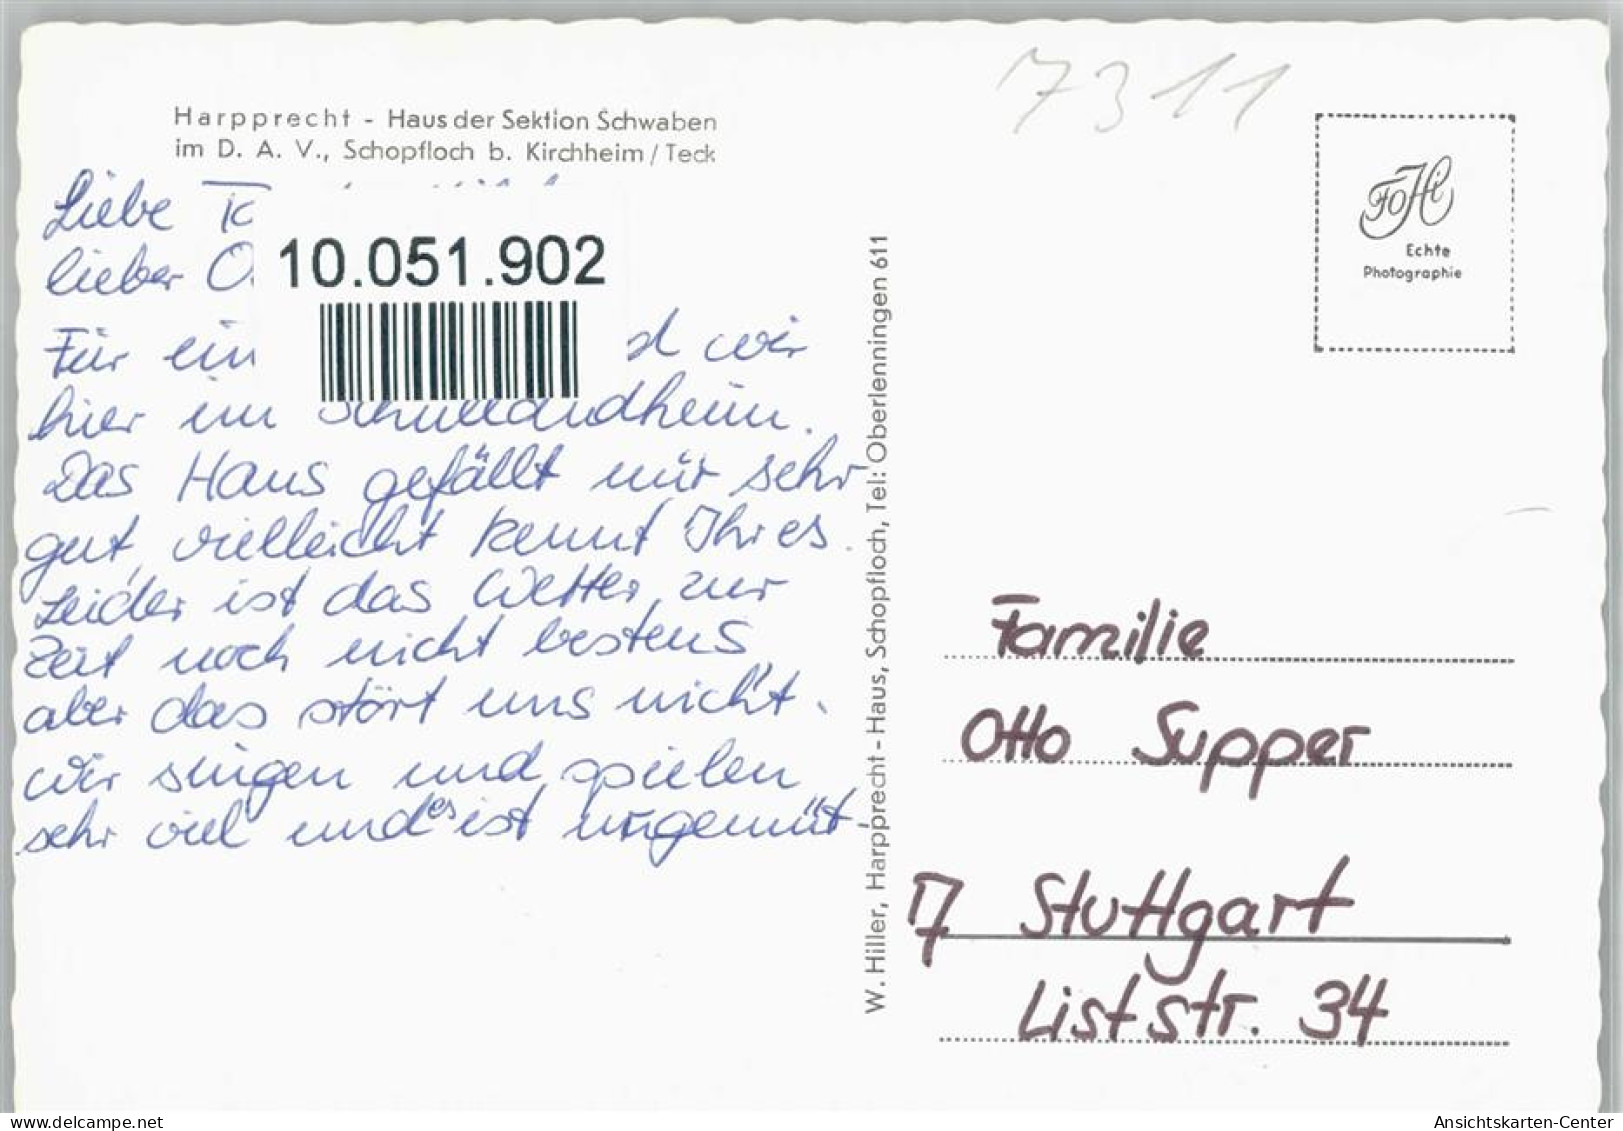 7311
Harpprecht - Haus der Sektion Schwaben
im D. A. V., Schopfloch b. Kirchheim / Teck
Liebe
lieber O
10.051.902
Für ein d wir
hier im Schullandheim.
Das Haus gefällt mir sehr
gut, vielleicht kennt Ihr es.
Leider ist das Wetter zur
Zeit noch nicht bestens
aber das stört uns nicht.
Wir singen und spielen
sehr viel und es ist urgemüt-
W. Hiller, Harpprecht - Haus, Schopfloch, Tel: Oberlenningen 611
FoHi
Echte
Photographie
Familie
Otto Supper
7 Stuttgart
Liststr. 34
delcampe.net
Ansichtskarten-Center